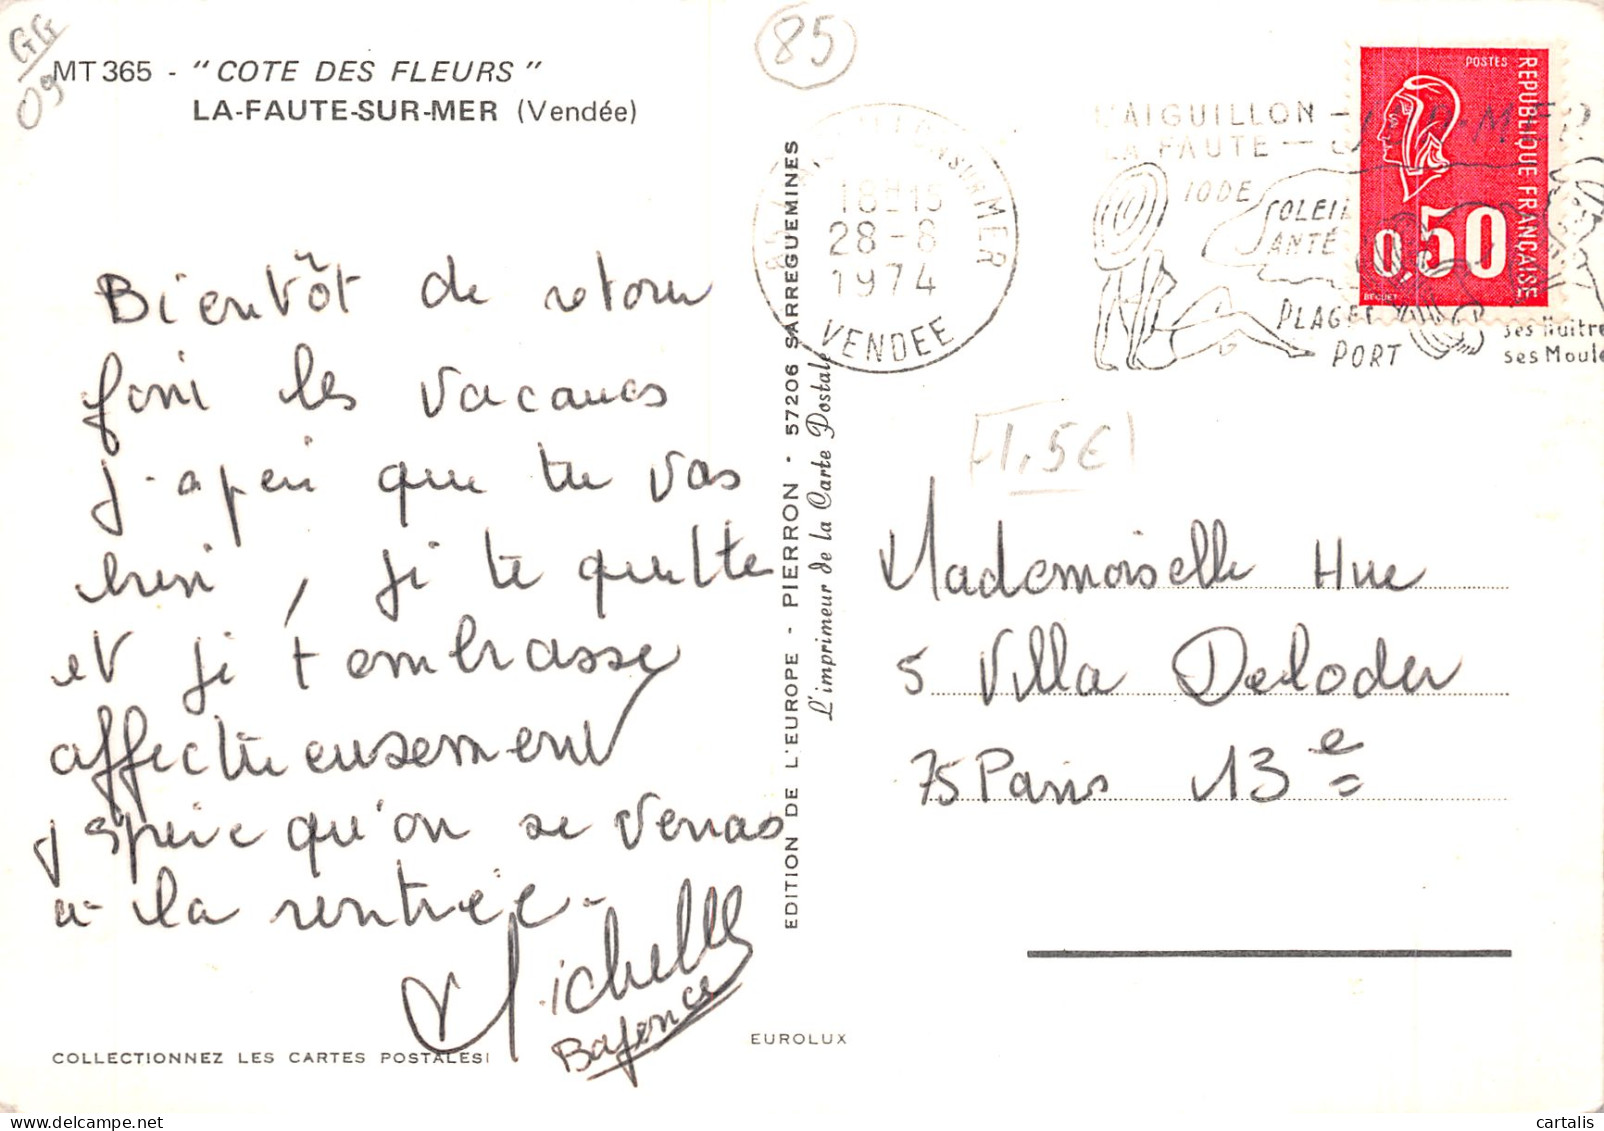 GG
09
85
MT 365 - "COTE DES FLEURS"
LA-FAUTE-SUR-MER (Vendée)
Bientôt de retour
fini les vacances
j'aperi que tu vas
bien, je te quitte
et je t'embrasse
affectueusement
j'spère qu'on se verras
à la rentrée.
Michelle
COLLECTIONNEZ LES CARTES POSTALES!
EUROLUX
EDITION DE L'EUROPE - PIERRON - 57206 SARREGUEMINES
L'imprimeur de la Carte Postale
SUR MER
18H15
28-8
1974
VENDEE
L'AIGUILLON -
LA FAUTE -
SUR-MER
IODE
SOLEIL
SANTÉ
PLAGES
PORT
ses Huitres
ses Moules
POSTES
REPUBLIQUE FRANÇAISE
0,50
BEQUET
1,5€
Mademoiselle Hue
5 Villa Deloder
75 Paris 13e
cartalis | delcampe.net